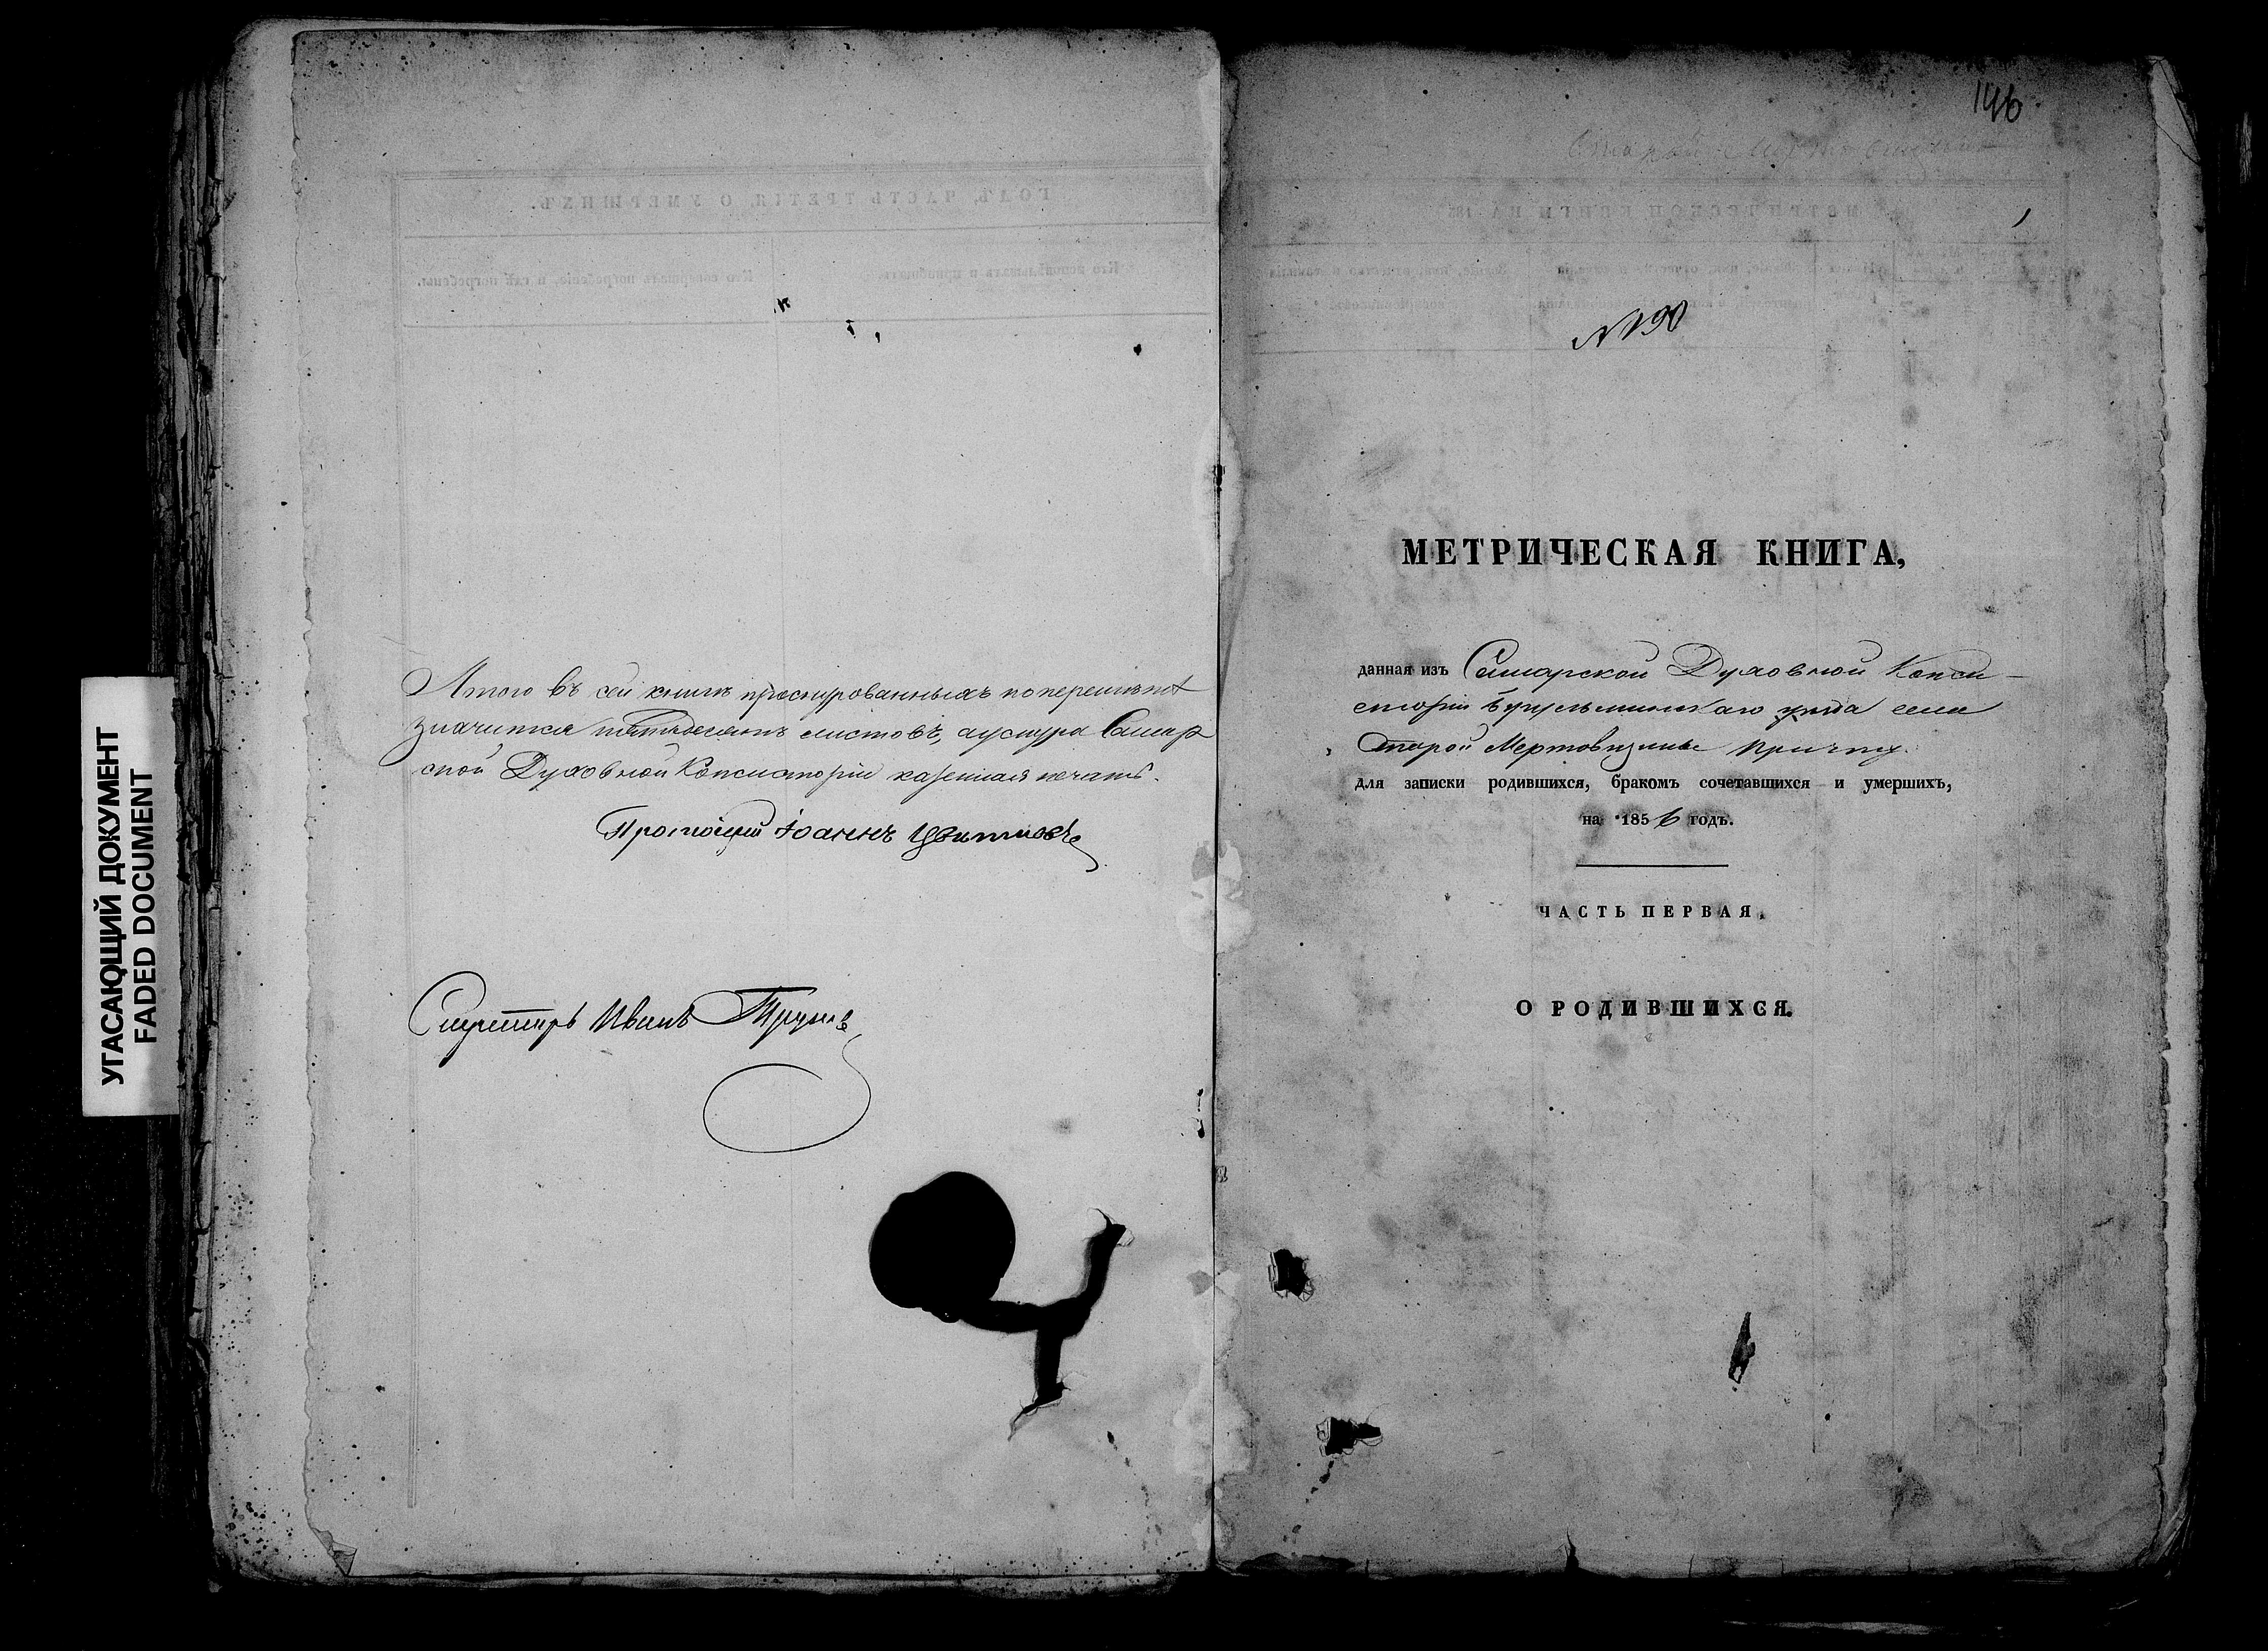 УГАСАЮЩИЙ ДОКУМЕНТ
FADED DOCUMENT
Итого въ сей книге прошнурованныхъ
значится листовъ, а у шнура Самар
ской Духовной Консисторіи казенная печать.
Протоіерей Іоаннъ
Секретарь Иванъ
146
1
№ 90
МЕТРИЧЕСКАЯ КНИГА,
данная изъ Самарской Духовной Конси-
сторіи Бугульминскаго уезда села
Старой Мертовщины причту
для записки родившихся, бракомъ сочетавшихся и умершихъ,
на 1856 годъ.
ЧАСТЬ ПЕРВАЯ.
О РОДИВШИХСЯ.